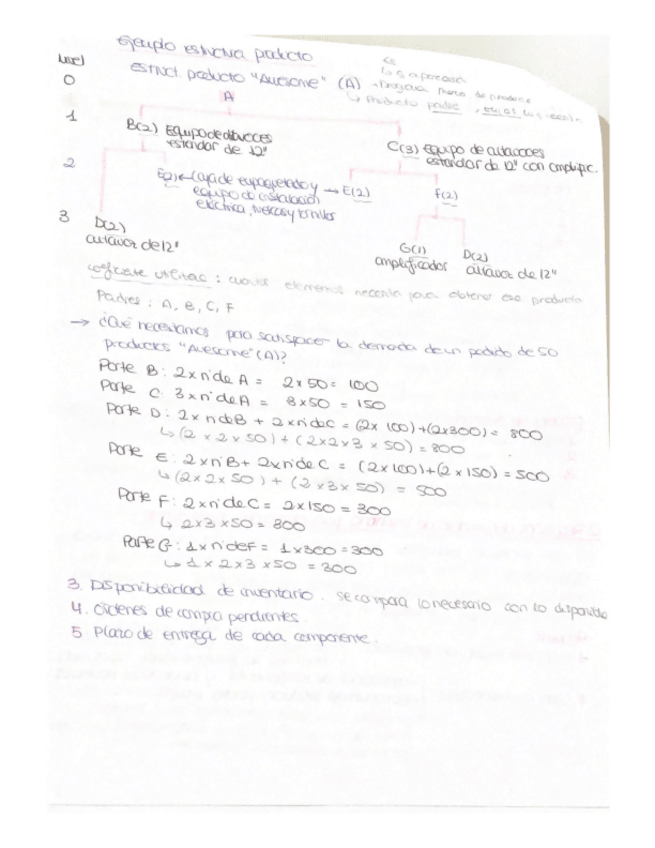 Ejemplo estructura producto
Nivel
0 Estruct. producto "Awesome" (A)
A
1
B(2) Equipo de altavoces estándar de 12"
C(3) Equipo de altavoces estándar de 12" con amplific.
2
E(2) ← Caja de empaquetado y equipo de instalación eléctrica, tuercas y tornillos → E(2)
F(2)
3 D(2)
altavoz de 12"
G(1) amplificador
D(2) altavoz de 12"
coeficiente utilizac : cuantos elementos necesito para obtener ese producto
Padres : A, B, C, F
→ ¿Qué necesitamos para satisfacer la demanda de un pedido de 50
productos "Awesome" (A)?
Parte B : 2 x nº de A = 2 x 50 = 100
Parte C : 3 x nº de A = 3 x 50 = 150
Parte D : 2 x nº de B + 2 x nº de C = (2 x 100) + (2x300) = 800
↳ (2 x 2 x 50) + (2 x 2 x 3 x 50) = 800
Parte E : 2 x nº B + 2 x nº de C = (2 x 100) + (2 x 150) = 500
↳ (2 x 2 x 50) + (2 x 3 x 50) = 500
Parte F : 2 x nº de C = 2 x 150 = 300
↳ 2 x 3 x 50 = 300
Parte G : 1 x nº de F = 1 x 300 = 300
↳ 1 x 2 x 3 x 50 = 300
3. Disponibilidad de inventario. Se compara lo necesario con lo disponible
4. Órdenes de compra pendientes.
5. Plazo de entrega de cada componente.